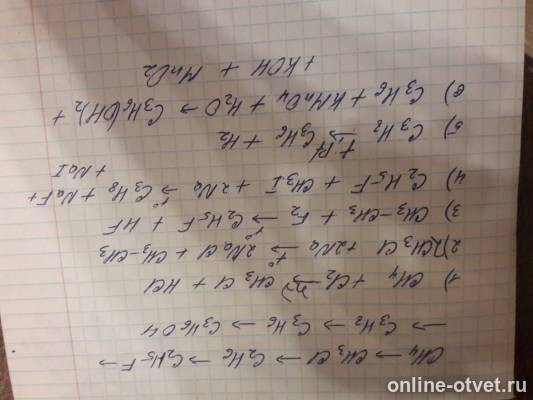 CH4 → CH3Cl → C2H6 → C2H5F →
→ C3H8 → C3H6 → C3H6OH
1) CH4 + Cl2 →hν CH3Cl + HCl
2) 2CH3Cl + 2Na →t° 2NaCl + CH3-CH3
3) CH3-CH3 + F2 →t° C2H5F + HF
4) C2H5F + CH3I + 2Na →t° C3H8 + NaF +
+ NaI
5) C3H8 →t,Pt C3H6 + H2
6) C3H6 + KMnO4 + H2O → C3H6(OH)2 +
+ KOH + MnO2
online-otvet.ru